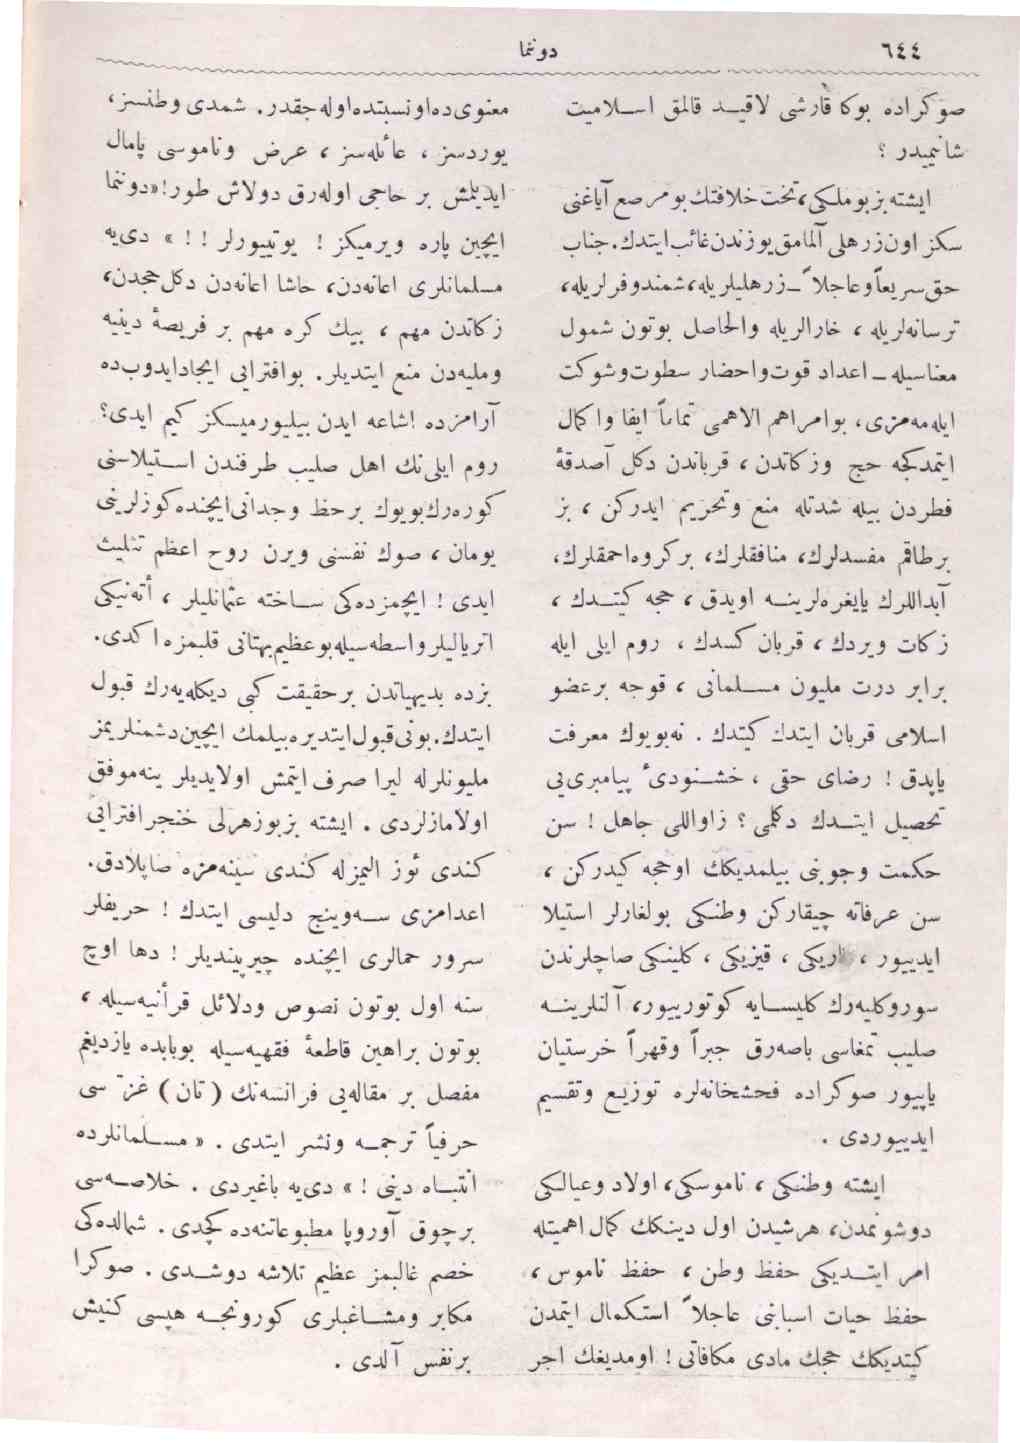 ٦٤٤
دوننما
صوكراده بوكا قارشی لاقیــد قالمق اســلامیت
شانمیدر ؟
ایشته بز بو ملكی، تخت خلافتك بو مرصع آیاغنی
سكز اون زرهلی آلمامق یوزندن غائب ایتدك. جناب
حق سریعاً و عاجلاً ــ زرهلیلریله، شمندوفرلریله،
ترسانه‌لریله ، خارالریله والحاصل بوتون شمول
معناسیله ــ اعداد قوت و احضار سطوت و شوكت
ایله‌مه‌مزی، بو امر اهم الاهمی تماماً ایفا و اكمال
ایتمدكجه حج وزكاتدن ، قرباندن دكل آصدقهٔ
فطردن بیله شدتله منع وتحریم ایدركن ، بز
برطاقم مفسدلرك، منافقلرك، بركروه احمقلرك،
آبداللرك یایغره‌لرینــه اویدق ، حجه كیتــدك ،
زكات ویردك ، قربان كسدك ، روم ایلی ایله
برابر درت ملیون مســلمانی ، قوجه برعضو
اسلامی قربان ایتدك كیتدك . نه بویوك معرفت
یاپدق ! رضای حقی ، خشــنودیٔ پیامبری‌یی
تحصیل ایتــدك دكلمی ؟ زاواللی جاهل ! سن
حكمت وجوبنی بیلمدیكك اوحجه كیدركن ،
سن عرفاته چیقاركن وطنكی بولغارلر استیلا
ایدییور ، قاریكی ، قیزیكی ، كلینكی صاچلرندن
سوروكلیه‌رك كلیســایه كوتورییور، آلنلرینــه
صلیب تمغاسی باصه‌رق جبراً وقهراً خرستیان
یاپییور صوكراده فحشخانه‌لره توزیــع وتقسیم
ایدییوردی .
ایشته وطنكی ، ناموسكی، اولاد وعیالكی
دوشونمدن، هرشیدن اول دینكك كمال اهمیتله
امر ایتــدیكی حفظ وطن ، حفظ ناموس ،
حفظ حیات اسبابنی عاجلاً استــكمال ایتمدن
كیتدیكك حجك مادی مكافاتی ! اومدیغك اجر
معنوی‌ده‌او نسبتده‌اوله‌جقدر. شمدی وطنسز،
یوردسز ، عائله‌سز ، عرض وناموسی پامال
ایدیلمش بر حاجی اوله‌رق دولاش طور! «دوننما
ایچین پاره ویرمیكز ! یوتییورلر !! » دی‌یه
مسلمانلری اعانه‌دن، حاشا اعانه‌دن دكل حجدن،
زكاتدن مهم ، بیك كره مهم بر فریضهٔ دینیه
وملیه‌دن منع ایتدیلر. بوافترایی ایجادایدوب‌ده
آرامزده اشاعه ایدن بیلیورمیسكز كیم ایدی؟
روم ایلی‌نك اهل صلیب طرفندن اســتیلاسنی
كوره‌رك بویوك برحظ وجدانی ایچنده كوزلرینی
یومان ، صوك نفسنی ویرن روح اعظم تثلیث
ایدی ! ایچمزده‌كی ســاخته عثمانلیلر ، أته‌نیكی
اتریالیلر واسطه‌سیله بو عظیم بهتانی قلبمزه اكدی.
بزده بدیهیاتدن برحقیقت كبی دیكله‌یه‌رك قبول
ایتدك. بونی قبول ایتدیره بیلمك ایچین دشمنلریمز
ملیونلرله لیرا صرف ایتمش اولایدیلر ینه موفق
اولامازلردی . ایشته بز بو زهرلی خنجر افترایی
كندی ئوز الیمزله كندی سینه‌مزه صاپلادق.
اعدامزی ســه‌وینج دلیسی ایتدك ! حریفلر
سرور حمالری ایچنده چیرپیندیلر ! دها اوچ
سنه اول بوتون نصوص ودلائل قرأنیه‌سیله ،
بوتون براهین قاطعهٔ فقهیه‌سیله بوبابده یازدیغم
مفصل بر مقاله‌یی فرانسه‌نك ( تان ) غزته سی
حرفیاً ترجمــه ونشر ایتدی . « مســلمانلرده
انتبــاه دینی ! » دی‌یه باغیردی . خلاصــه‌سی
برچوق آوروپا مطبوعاتنه‌ده كچدی . شمالده‌كی
خصم غالبمز عظیم تلاشه دوشــدی . صوكرا
مكابر ومشــاغبلری كورونجــه هپسی كنیش
برنفس آلدی .